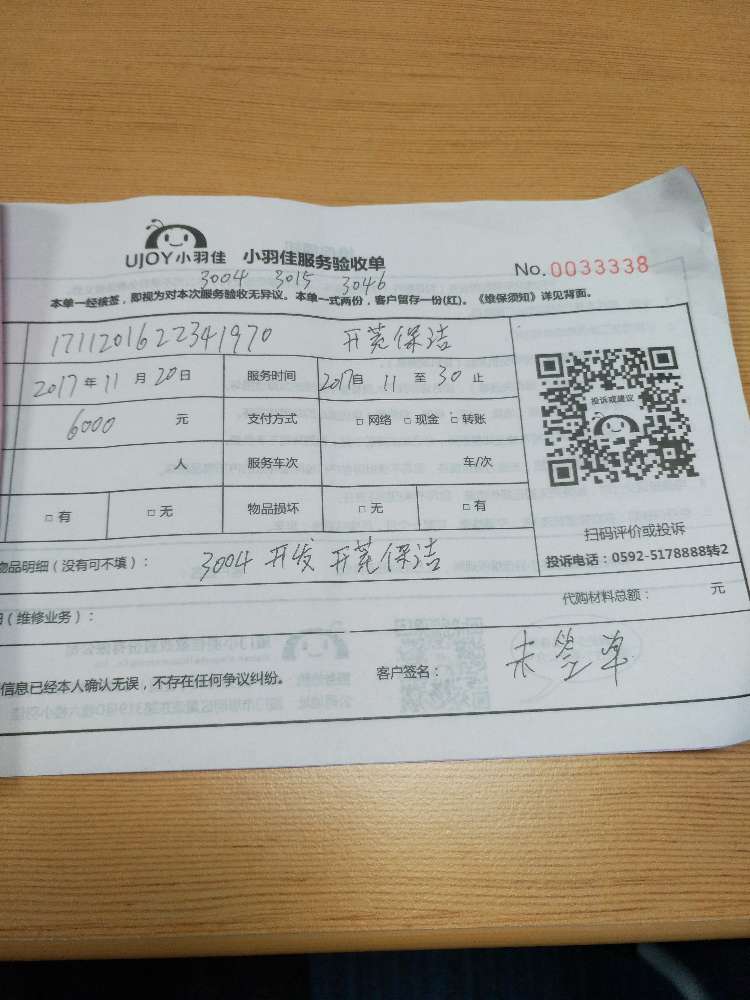 UJOY小羽佳 小羽佳服务验收单 No.0033338
3004 3015 3046
本单一经核签，即视为对本次服务验收无异议。本单一式两份，客户留存一份(红)。《维保须知》详见背面。
1711201622341970 开荒保洁
2017年11月20日 服务时间 2017自11至30止
6000元 支付方式 □网络 □现金 □转账
人 服务车次 车/次
□有 □无 物品损坏 □无 □有
投诉或建议
扫码评价或投诉
投诉电话：0592-5178888转2
物品明细（没有可不填）： 3004 开发 开荒保洁
（维修业务）： 代购材料总额： 元
信息已经本人确认无误，不存在任何争议纠纷。 客户签名： 未签单